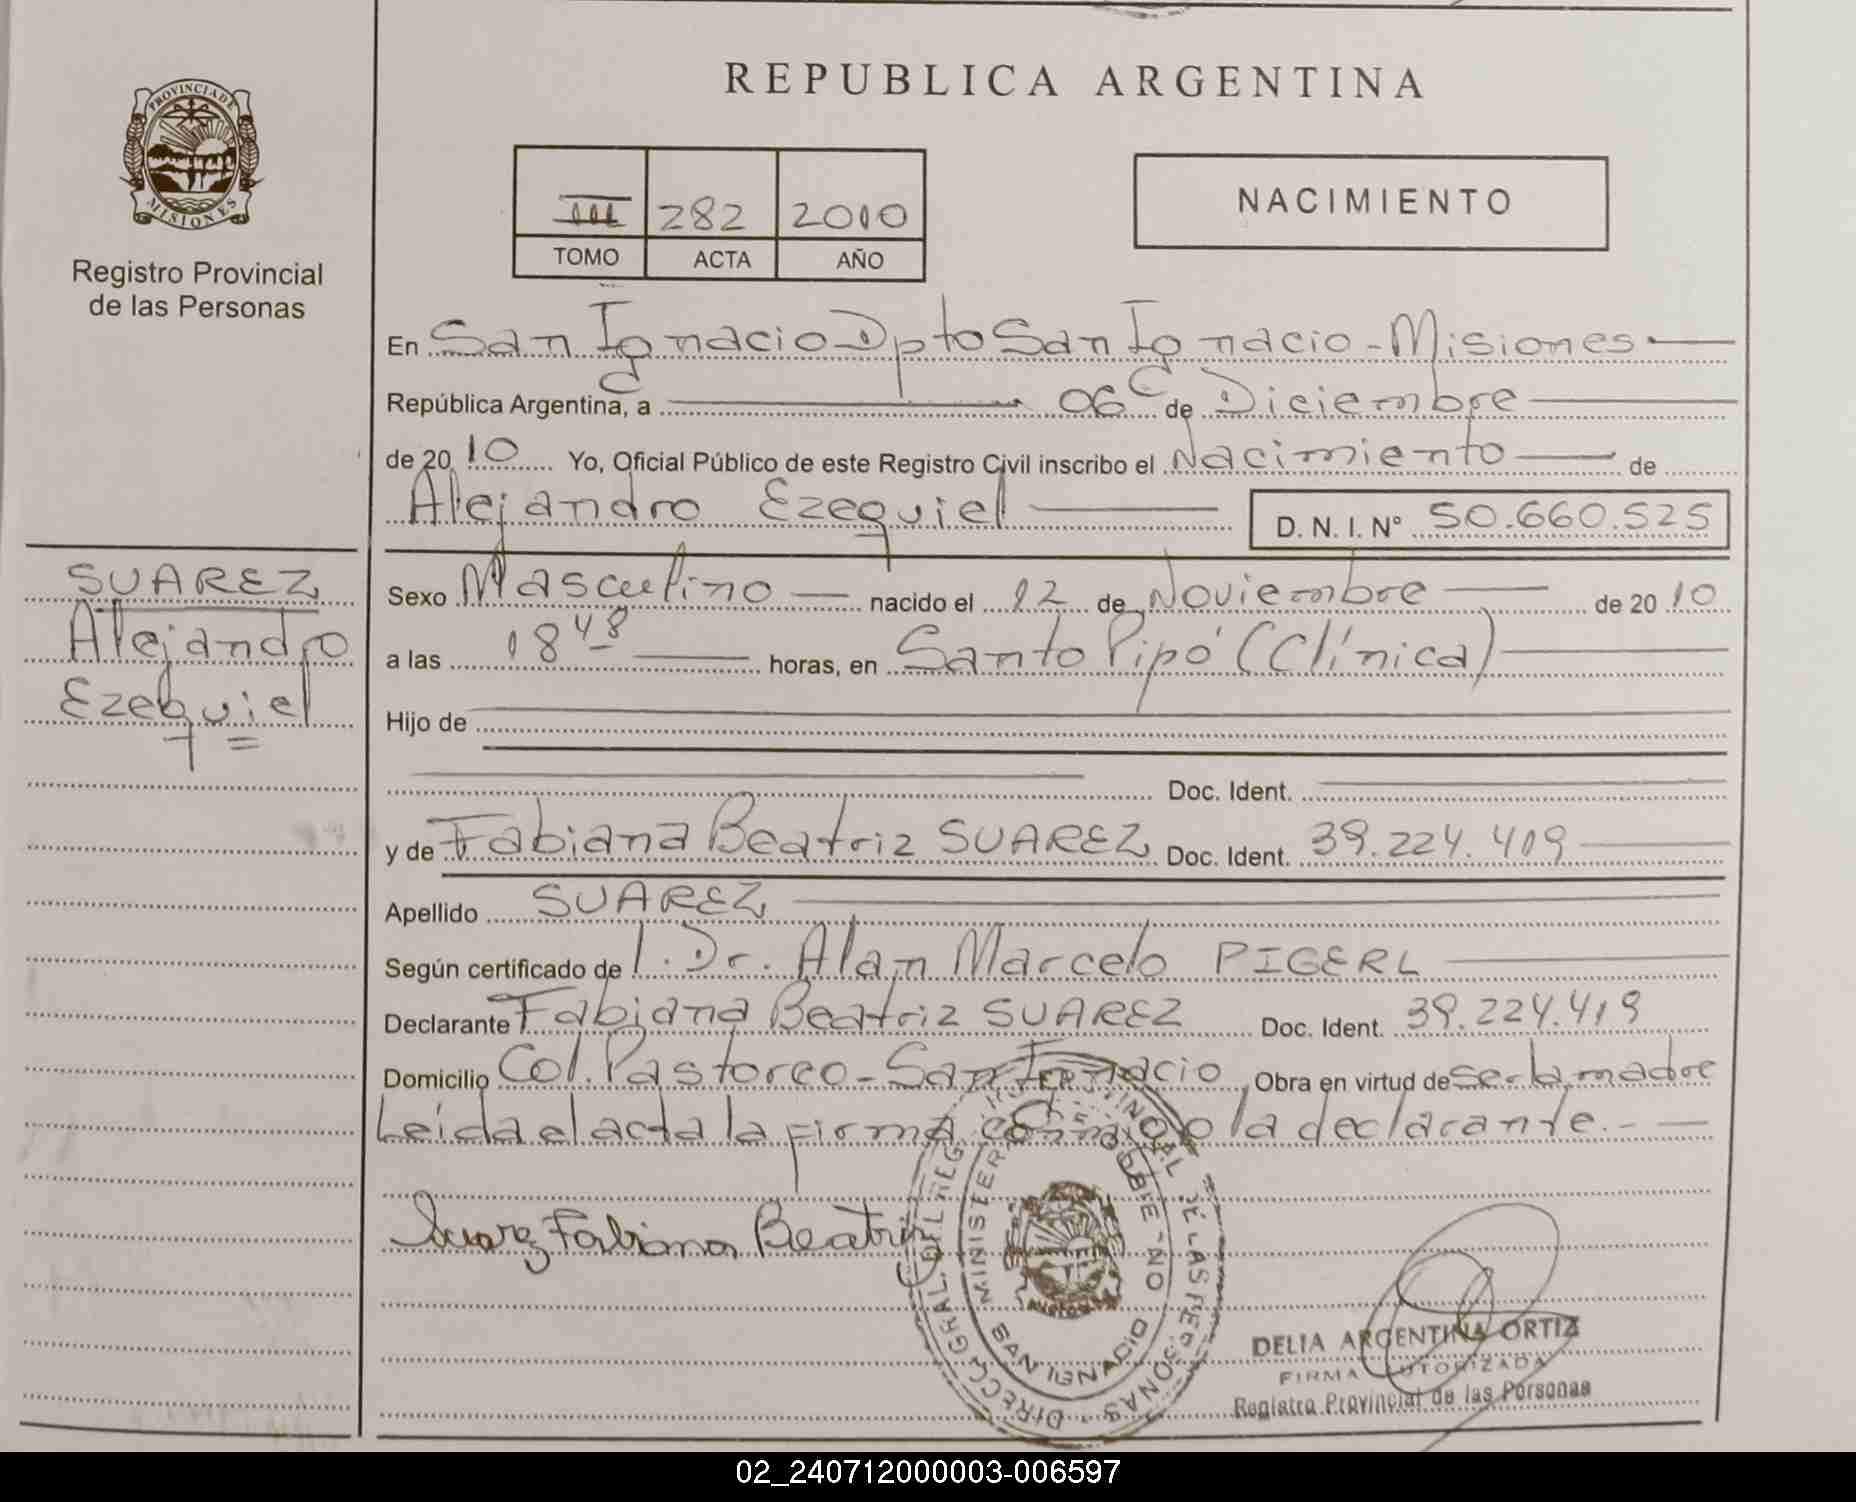 REPUBLICA ARGENTINA
PROVINCIA DE
MISIONES
Registro Provincial
de las Personas
III 282 2010
TOMO ACTA AÑO
NACIMIENTO
En San Ignacio Dpto San Ignacio - Misiones
República Argentina, a 06 de Diciembre
de 2010 Yo, Oficial Público de este Registro Civil inscribo el Nacimiento de
Alejandro Ezequiel D. N. I. N° 50.660.525
SUAREZ
Alejandro
Ezequiel
Sexo Masculino nacido el 12 de Noviembre de 2010
a las 18 48 horas, en Santo Pipó (Clínica)
Hijo de
Doc. Ident.
y de Fabiana Beatriz SUAREZ Doc. Ident. 39.224.419
Apellido SUAREZ
Según certificado de l. Dr. Alan Marcelo PIGERL
Declarante Fabiana Beatriz SUAREZ Doc. Ident. 39.224.419
Domicilio Col. Pastoreo - San Ignacio Obra en virtud de ser la madre
Leída el acta la firma conmigo la declarante. -
Suarez Fabiana Beatriz
DIRECC. GRAL. DEL REG. PROVINCIAL DE LAS PERSONAS
MINISTERIO DE GOBIERNO
SAN IGNACIO
DELIA ARGENTINA ORTIZ
FIRMA AUTORIZADA
Registro Provincial de las Personas
02_240712000003-006597